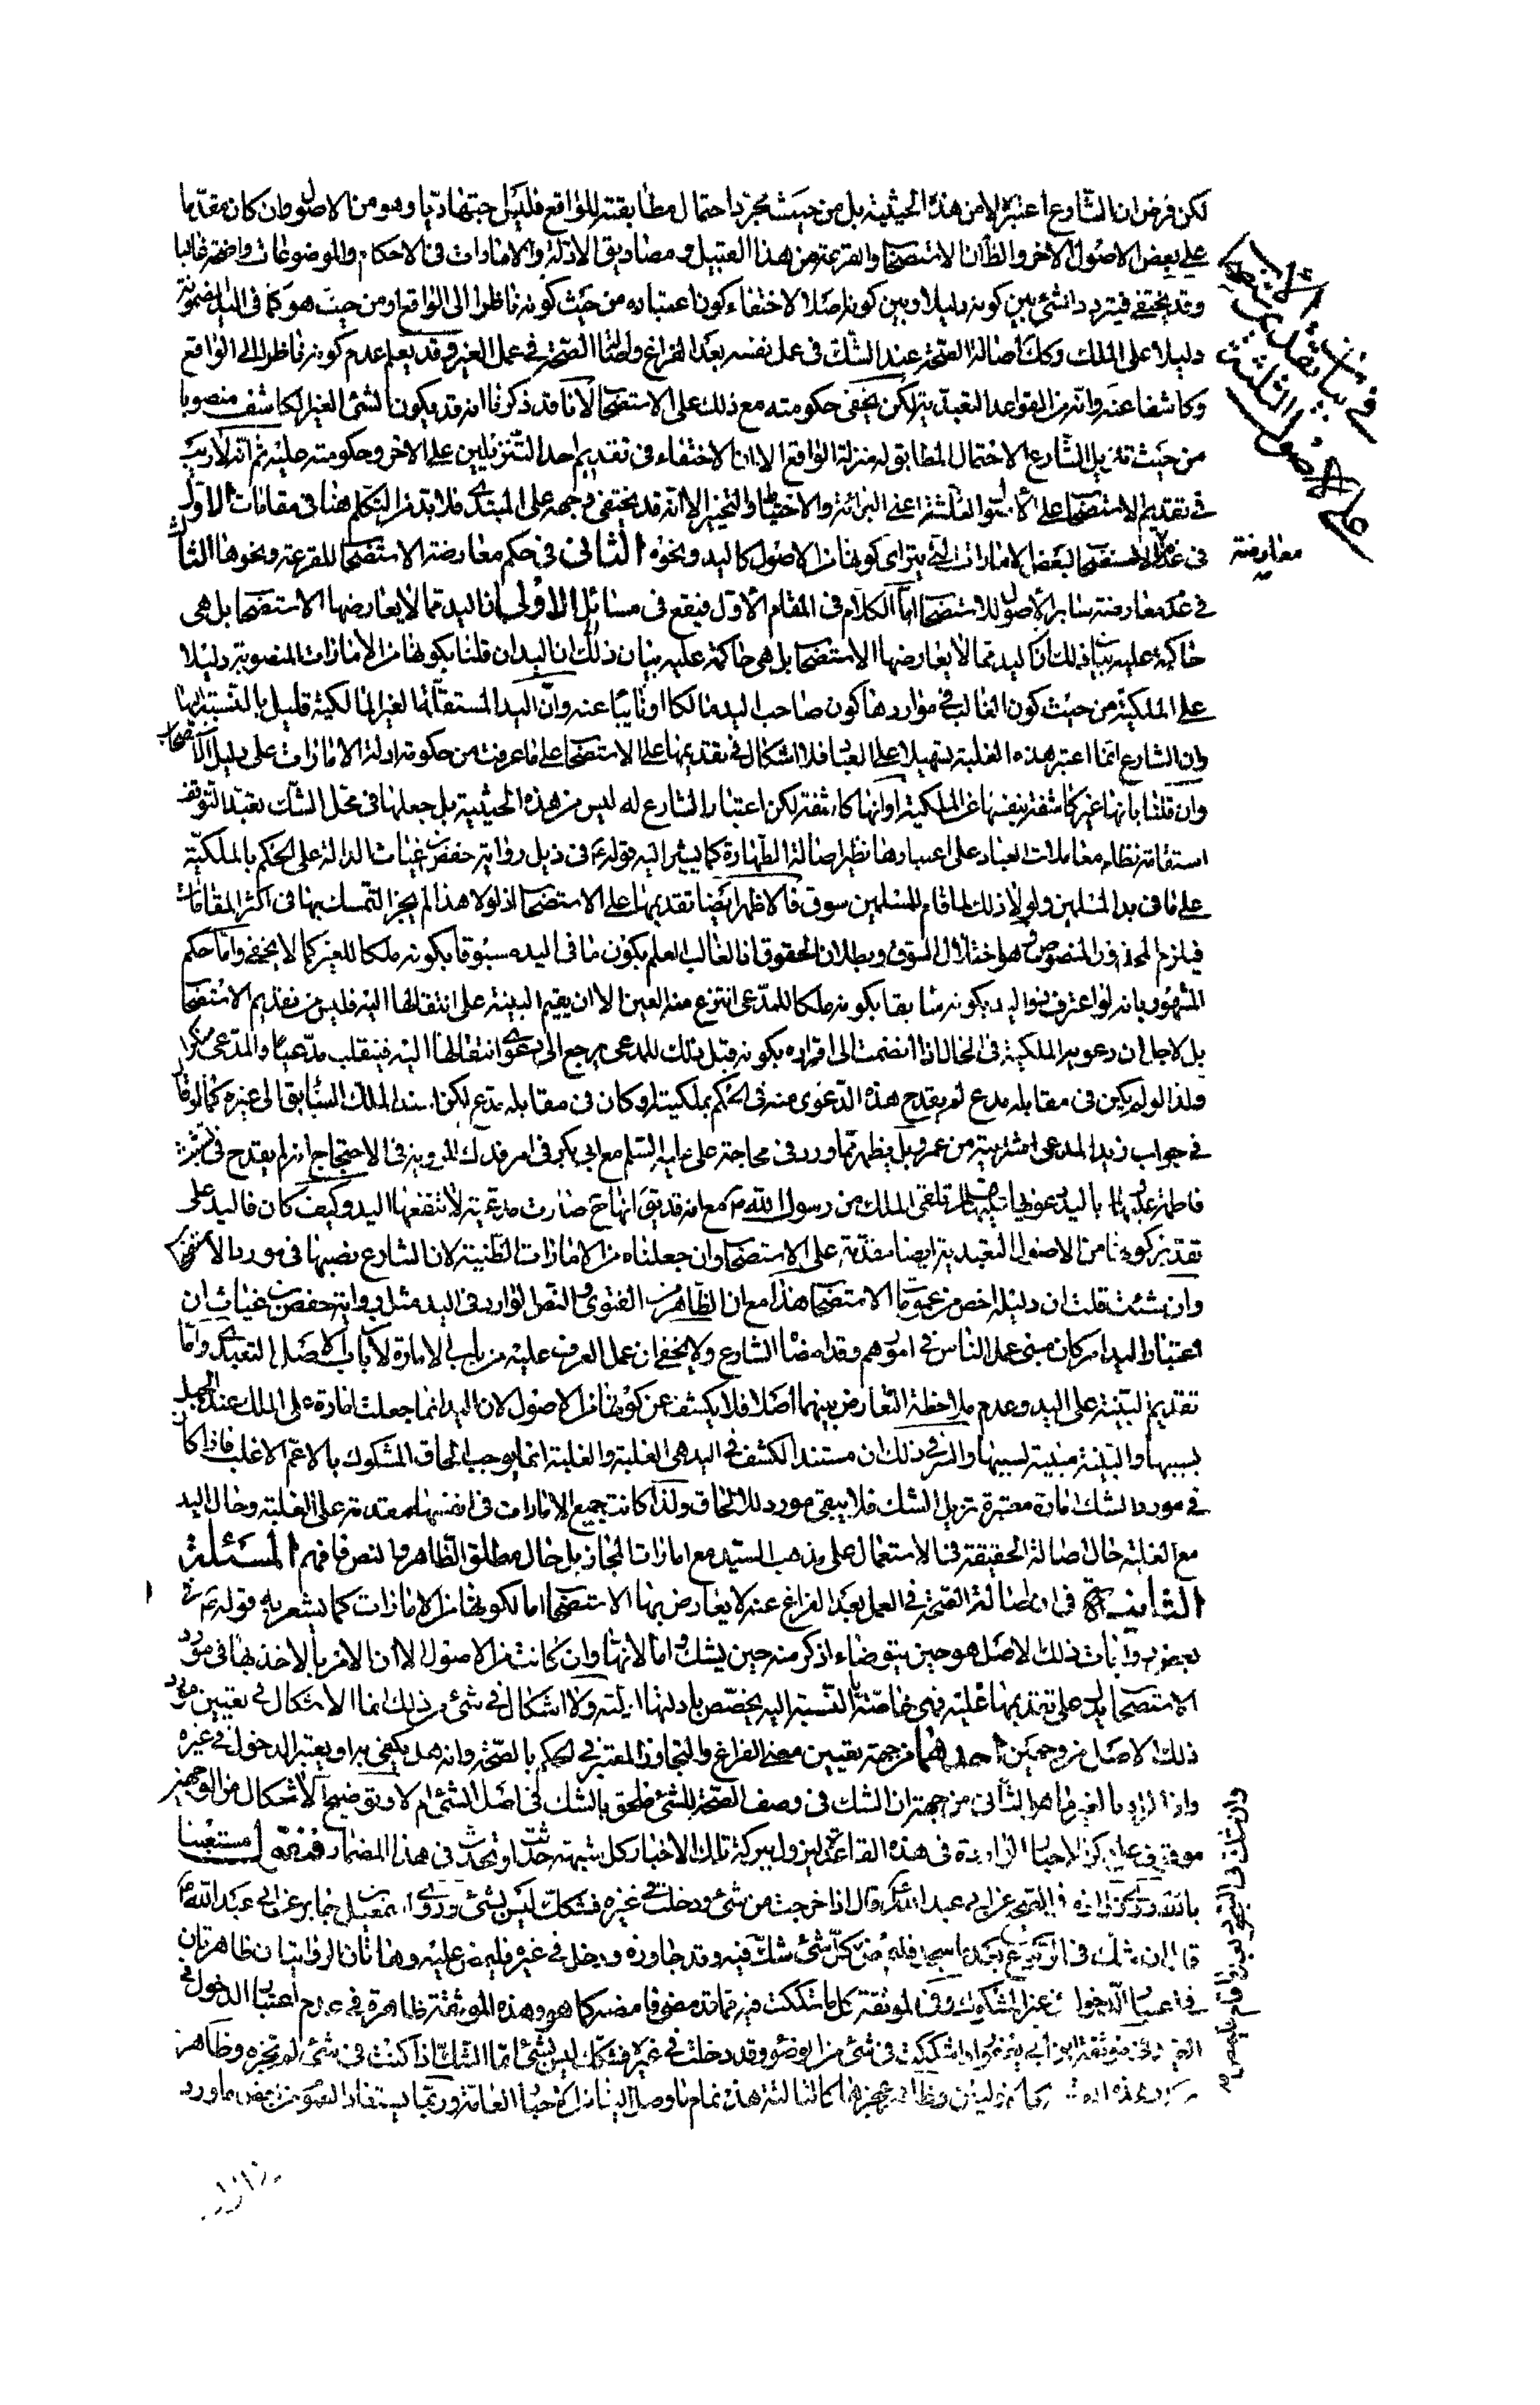 لكن فرض ان الشارع اعتبره لا من هذه الحيثية بل من حيث مجرد احتمال مطابقته للواقع فليس اجتهاديا وهو من الاصول وان كان مقدما
على بعض الاصول الاخر والظ ان الاستصحاب والقرعة من هذا القبيل ومصاديق الادلة والامارات فى الاحكام والموضوعات واضحة غالبا
وقد يختفى فيتردد الشئ بين كونه دليلا وبين كونه اصلا لاختفاء كون اعتباره من حيث كونه ناظرا الى الواقع او من حيث هو كما فى اليد المنصوبة
دليلا على الملك وكك اصالة الصحة عند الشك فى عمل نفسه بعد الفراغ واصالة الصحة فى عمل الغير وقد يعلم عدم كونه ناظرا الى الواقع
وكاشفا عنه وانه من القواعد التعبدية لكن يختفى حكومته مع ذلك على الاستصحاب لانا قد ذكرنا انه قد يكون الشئ الغير الكاشف منصوبا
من حيث تنزيل الشارع الاحتمال المطابق له منزلة الواقع الا ان الاختفاء فى تقديم احد التنزيلين على الاخر وحكومته عليه ثم انه لا ريب
فى تقديم الاستصحاب على الاصول الثلثة اعنى البرائة والاحتياط والتخيير الا انه قد يختفى وجهه على المبتدى فلا بد من التكلم هنا فى مقامات الاول
فى عدم معارضة الاستصحاب لبعض الامارات التى يترائى كونها من الاصول كاليد ونحوه الثانى فى حكم معارضة الاستصحاب للقرعة ونحوها الثالث
فى عدم معارضة سائر الاصول للاستصحاب اما الكلام فى المقام الاول فيقع فى مسائل الاولى ان اليد مما لا يعارضها الاستصحاب بل هى
حاكمة عليه بيان ذلك ان اليد مما لا يعارضها الاستصحاب بل هى حاكمة عليه بيان ذلك ان اليد ان قلنا بكونها من الامارات المنصوبة دليلا
على الملكية من حيث كون الغالب فى مواردها كون صاحب اليد مالكا او نايبا عنه وان اليد المستقلة الغير المالكية قليل بالنسبة اليها
وان الشارع انما اعتبر هذه الغلبة تسهيلا على العباد فلا اشكال فى تقديمها على الاستصحاب على ما عرفت من حكومة ادلة الامارات على دليل الاستصحاب
وان قلنا بانها غير كاشفة بنفسها عن الملكية او انها كاشفة لكن اعتبار الشارع له ليس من هذه الحيثية بل جعلها فى محل الشك تعبدا لتوقف
استقامة نظام معاملات العباد على اعتبارها نظير اصالة الطهارة كما يشير اليه قوله ع فى ذيل رواية حفص بن غياث الدالة على الحكم بالملكية
على ما فى يد المسلمين ولولا ذلك لما قام للمسلمين سوق فالاظهر ايضا تقديمها على الاستصحاب اذ لولا هذا لم يجز التمسك بها فى اكثر المقامات
فيلزم المحذور المنصوص وهو اختلال السوق وبطلان الحقوق اذ الغالب العلم بكون ما فى اليد مسبوقا بكونه ملكا للغير كما لا يخفى واما حكم
المشهور بانه لو اعترف ذو اليد بكونه سابقا بكونه ملكا للمدعى انتزع منه العين الا ان يقيم البينة على انتقالها اليه فليس من تقديم الاستصحاب
بل لاجل ان دعويه الملكية فى الحال اذا انضمت الى اقراره بكونه قبل ذلك للمدعى يرجع الى دعوى انتقالها اليه فينقلب مدعيا والمدعى منكرا
ولذا لو لم يكن فى مقابله مدع لم يقدح هذه الدعوى منه فى الحكم بملكيته او كان فى مقابله مدع لكن اسند الملك السابق الى غيره كما لو قال
فى جواب زيد المدعى اشتريته من عمرو بل يظهر مما ورد فى محاجة على عليه السلم مع ابى بكر فى امر فدك المروية فى الاحتجاج انه لم يقدح فى تشبث
فاطمة عليها السلام باليد دعويها تلقى الملك من رسول الله ص مع انه قد يق انها ح صارت مدعية لا تنفعها اليد وكيف كان فاليد على
تقدير كونها من الاصول التعبدية ايضا مقدمة على الاستصحاب وان جعلناه من الامارات الظنية لان الشارع نصبها فى مورد الاستصحاب
وان شئت قلت ان دليله اخص من عمومات الاستصحاب هذا مع ان الظاهر من الفتوى والنص الوارد فى اليد مثل رواية حفص بن غياث ان
اعتبار اليد امر كان مبنى عمل الناس فى امورهم وقد امضاه الشارع ولا يخفى ان عمل العرف عليه من باب الامارة لا من باب الاصل التعبدى واما
تقديم البينة على اليد وعدم ملاحظة التعارض بينهما اصلا فلا يكشف عن كونها من الاصول لان اليد انما جعلت امارة على الملك عند الجهل
بسببها والبينة مبينة لسببها والسر فى ذلك ان مستند الكشف فى اليد هى الغلبة والغلبة انما يوجب الحاق المشكوك بالاعم الاغلب فاذا كان
فى مورد الشك امارة معتبرة تزيل الشك فلا يبقى مورد للالحاق ولذا كانت جميع الامارات فى انفسها مقدمة على الغلبة وحال اليد
مع الغلبة حال اصالة الحقيقة فى الاستعمال على مذهب السيد مع امارات المجاز بل حال مطلق الظاهر والنص فافهم المسئلة
الثانية فى ان اصالة الصحة فى العمل بعد الفراغ عنه لا يعارض بها الاستصحاب اما لكونها من الامارات كما يشعر به قوله ع فى
بعض روايات ذلك الاصل هو حين يتوضاء اذكر منه حين يشك واما لانها وان كانت من الاصول الا ان الامر بالاخذ بها فى مورد
الاستصحاب يدل على تقديمها عليه فهى خاصة بالنسبة اليه يخصص بادلتها ادلته ولا اشكال فى شئ من ذلك انما الاشكال فى تعيين مورد
ذلك الاصل من وجهين احدهما من جهة تعيين معنى الفراغ والتجاوز المعتبر فى الحكم بالصحة وانه هل يكتفى به او يعتبر الدخول فى غيره
وان المراد بالغير ما هو الثانى من جهة ان الشك فى وصف الصحة للشئ ملحق بالشك فى اصل الشئ ام لا وتوضيح الاشكال من الوجهين
موقوف على ذكر الاخبار الواردة فى هذه القاعدة ليزول ببركة تلك الاخبار كل شبهة حدثت او تحدث فى هذا المضمار فنقول مستعينا
بالله روى زرارة فى الصحيح عن ابى عبد الله قال اذا خرجت من شئ ودخلت فى غيره فشكك ليس بشئ وروى اسمعيل بن جابر عن ابى عبد الله ع
قال ان شك فى الركوع بعد ما سجد فليمض كل شئ شك فيه وقد جاوزه ودخل فى غيره فليمض عليه وهاتان الروايتان ظاهرتان
فى اعتبار الدخول فى غير المشكوك وفى الموثقة كل ما شككت فيه مما قد مضى فامضه كما هو وهذه الموثقة ظاهرة فى عدم اعتبار الدخول فى
الغير وفى موثقة ابن ابى يعفور اذا شككت فى شئ من الوضوء وقد دخلت فى غيره فشكك ليس بشئ انما الشك اذا كنت فى شئ لم تجزه وظاهر
هذه تمام ما وصل الينا من الاخبار العامة وربما يستفاد العموم من بعض ما ورد
فى بيان تقدم الاستصحاب
على الاصول الثلثة
معارضة
وان شك فى السجود بعد ما قام فليمض